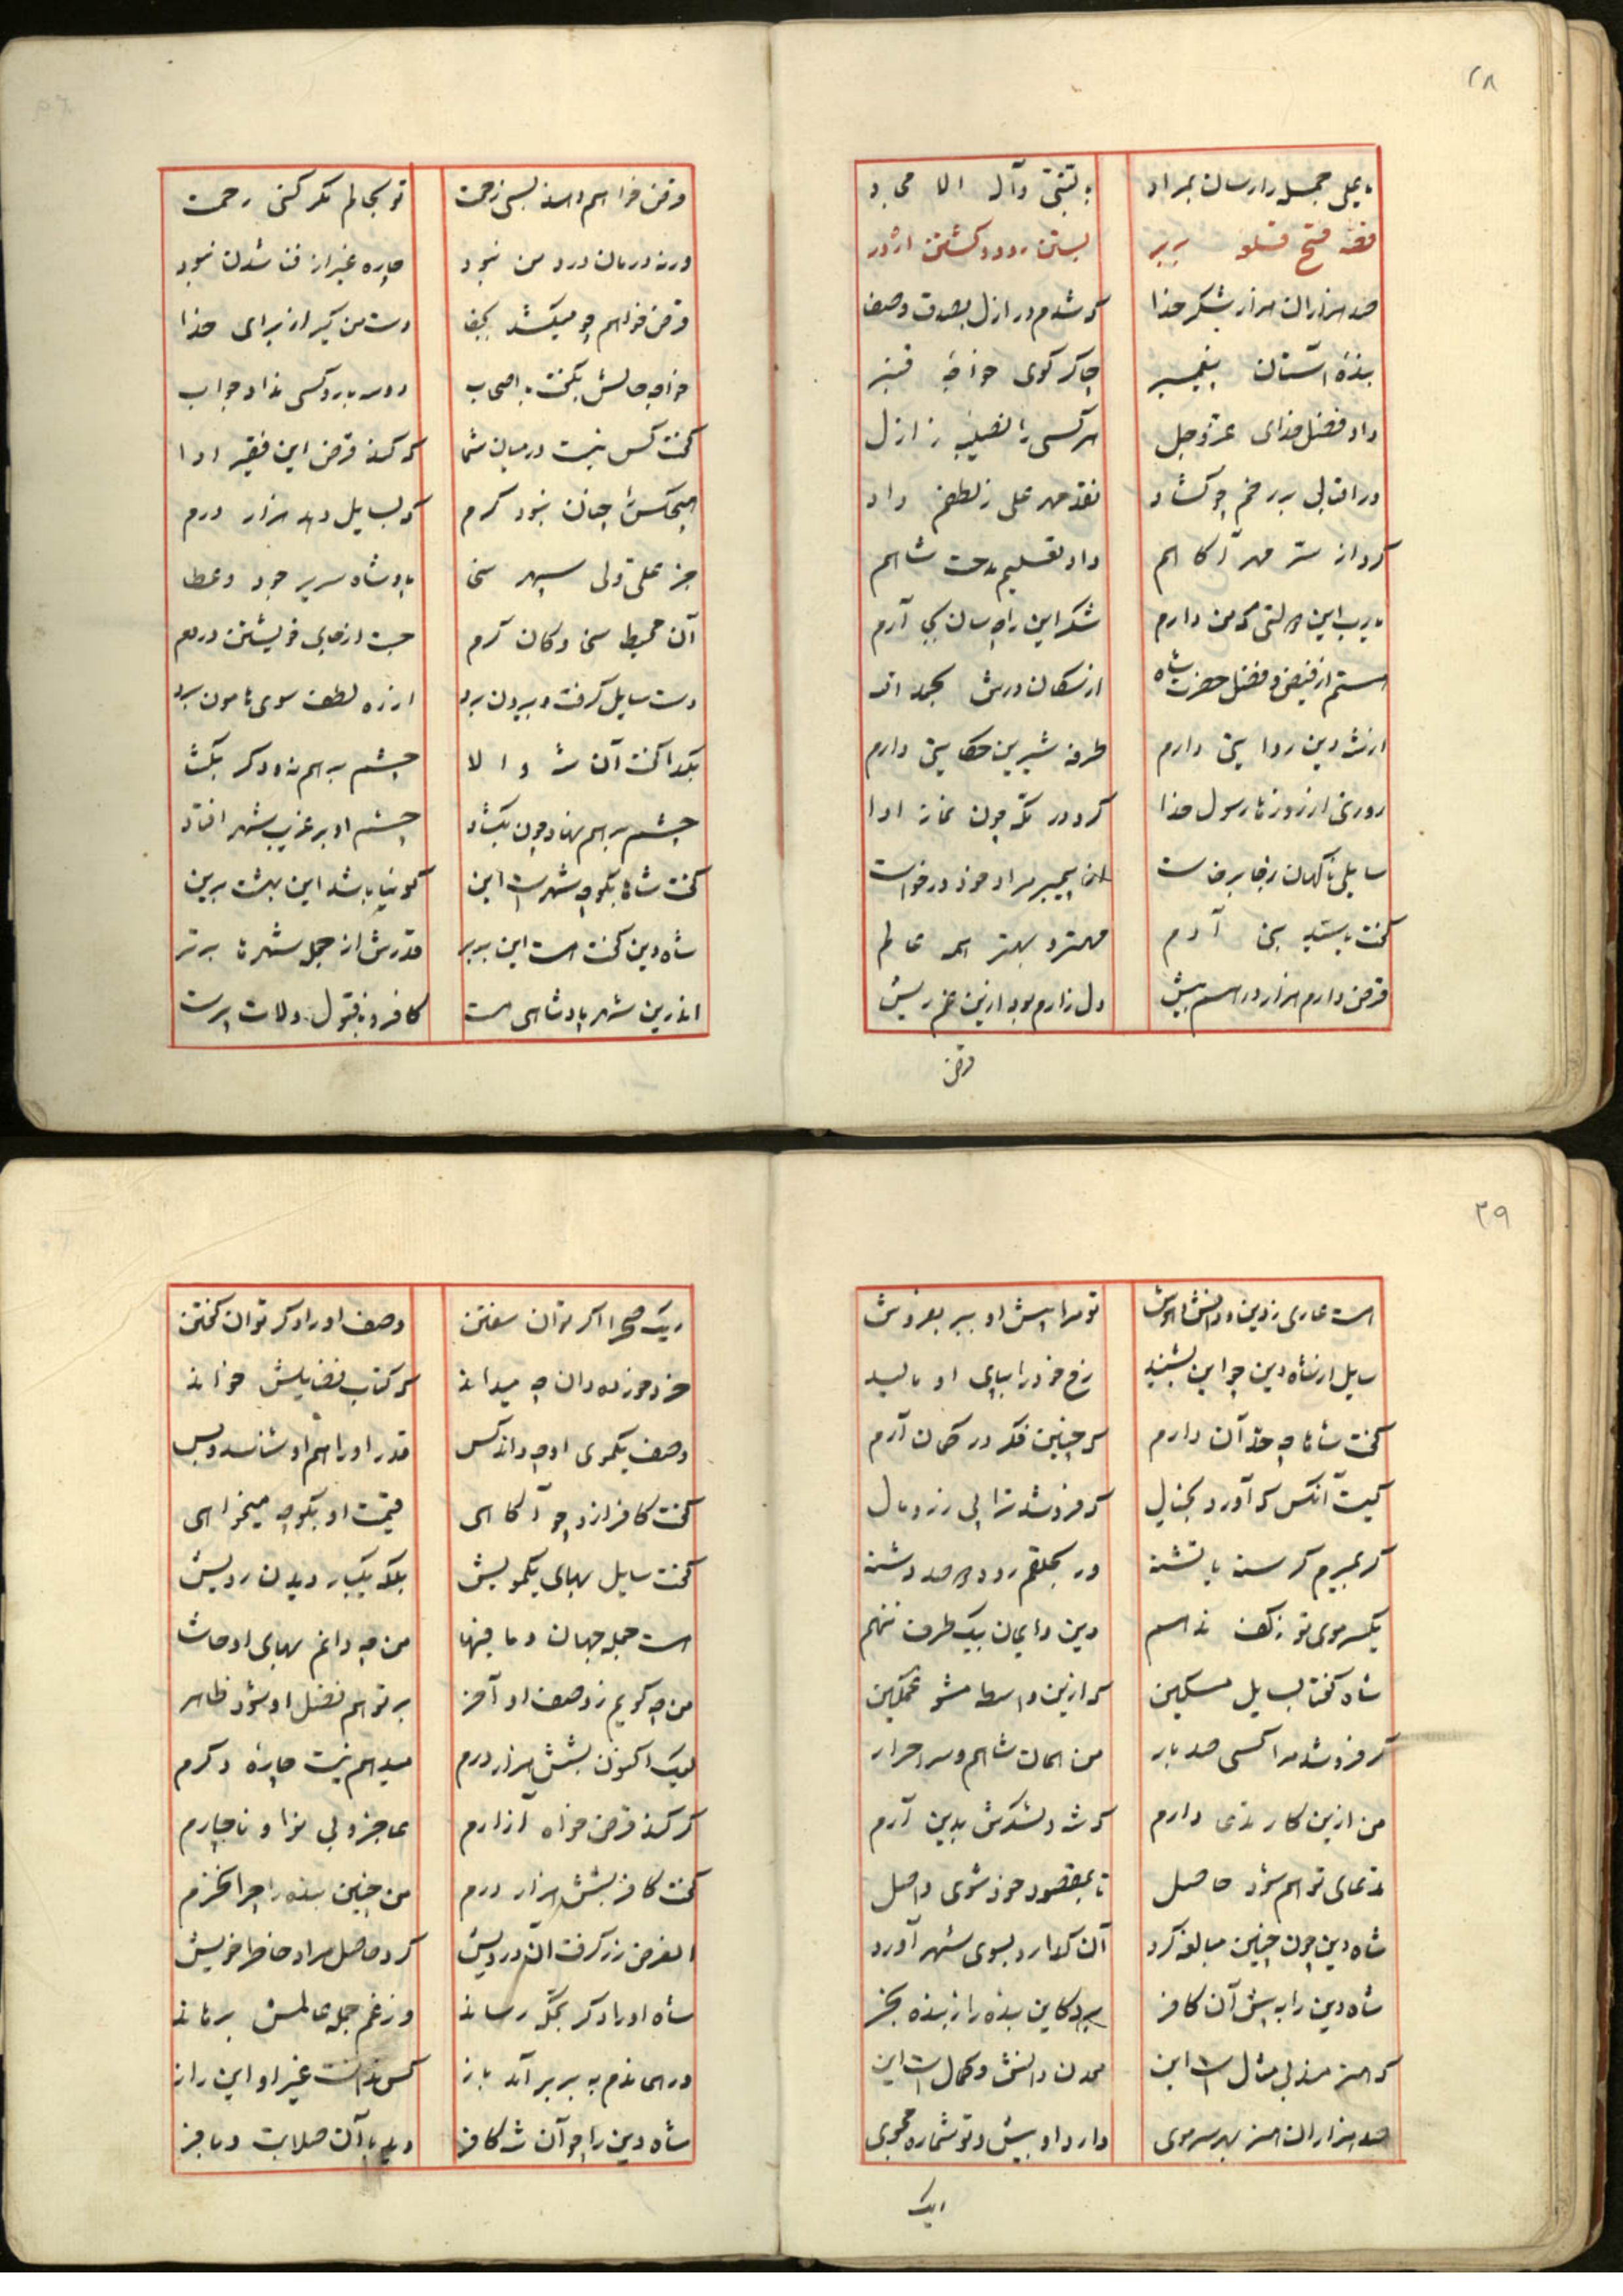 ۲۸
یا علی جمله را رسان بمراد
به نبی و آل الامجاد
قصه فتح قلعه بربر
بستن رود و کشتن اژدر
صد هزاران هزار شکر خدا
که شدم در ازل بصدق و صفا
بندهٔ آستان پیغمبر
چاکر کوی خواجهٔ قنبر
داد فضل خدای عز و جل
هر کسی را نصیبه ز ازل
در اقبال بر رخم چو کشاد
نقد مهر علی ز لطفم داد
کرد از سر مهر آکاهم
داد تعلیم مدحت شاهم
یا رب این دولتی که من دارم
شکر این را چسان بجای آرم
هستم از فیض و فضل حضرت شاه
از سکان درش بحمد الله
از شه دین روایتی دارم
طرفه شیرین حکایتی دارم
روزی از روزها رسول خدا
کرد در مکه چون نماز ادا
سایلی ناکهان ز جا برخاست
از پیمبر مراد خود درخواست
کفت یا سید بنی آدم
مهتر و بهتر همه عالم
قرض دارم هزار درهم بیش
دل زارم بود ازین غم ریش
قرض
قرض خواهم دهد بسی زحمت
تو بحالم مکر کنی رحمت
ورنه درمان درد من نبود
چاره غیر از فنا شدن نبود
قرض خواهم چو میکشد بجفا
دست من کیر از برای خدا
خواجه حالش بکفت با اصحاب
روبرو کسی نداد جواب
کفت کس نیست در میان شما
که کند قرض این فقیر ادا
هیچکس را چنان نبود کرم
که بسایل دهد هزار درم
جز علی ولی سپهر سخا
پادشاه سریر جود و عطا
آن محیط سخا و کان کرم
جست از جای خویشتن در دم
دست سایل کرفت و بیرون برد
از ره لطف سوی هامون برد
بکدا کفت آن شه والا
چشم بر هم نه و دکر بکشا
چشم بر هم نهاد چون بکشاد
چشم او بر غریب شهر افتاد
کفت شاها بکو چه شهرست این
کوئیا باشد این بهشت برین
شاه دین کفت هست این بربر
قدرش از جمله شهرها برتر
اندرین شهر پادشاهی هست
کافر و ناقبول و لات پرست
۲۹
است عاری ز دین و دانش و هوش
تو مرا پیش او ببر بفروش
سایل از شاه دین چو این بشنید
رخ خود را بپای او مالید
کفت شاها چه حد آن دارم
که چنین فکر در کمان آرم
کیست آنکس که آورد بخیال
که فروشد ترا پی زر و مال
کر بمیرم کرسنه یا تشنه
ور بحلقم رود دو صد دشنه
یکسر موی تو ز کف ندهم
دین و ایمان بیک طرف ننهم
شاه کفتا بسایل مسکین
که ازین واسطه مشو غمکین
کر فروشد مرا کسی صد بار
من همان شاهم و سر احرار
من ازین کار مدعا دارم
که شه و لشکرش بدین آرم
مدعای تو هم شود حاصل
تا بمقصود خود شوی واصل
شاه دین چون چنین مبالغه کرد
آن کدا رو بسوی شهر آورد
شاه دین را به پیش آن کافر
برد کاین بنده را ز بنده بخر
که هنرمند بی مثال است این
معدن دانش و کمال است این
صد هزاران هنر بهر سر موی
دارد او بیش و تو شماره مجوی
ریک
ریک صحرا اکر توان سفتن
وصف او را دکر توان کفتن
خرد خورده دان چه میداند
که کتاب فضایلش خواند
وصف یکموی او چه داند کس
قدر او را هم او شناسد و بس
کفت کافر ازو چو آکاهی
قیمت او بکو چه میخواهی
کفت سایل بهای یکمویش
بلکه یکبار دیدن رویش
است جمله جهان و ما فیها
من چه دانم بهای او حاشا
من چه کویم ز وصف او آخر
بر تو هم فضل او شود ظاهر
لیک اکنون بشش هزار درم
میدهم نیست چاره دکرم
کر کند قرض خواه آزارم
عاجز و بی نوا و ناچارم
کفت کافر بشش هزار درم
من چنین بنده را چرا نخرم
الغرض زر کرفت آن درویش
کرد حاصل مراد خاطر خویش
شاه او را دکر بمکه رساند
وز غم جمله عالمش برهاند
در همان دم به بربر آمد باز
کس ندانست غیر او این راز
شاه دین را چو آن شه کافر
دید با آن صلابت و با فر